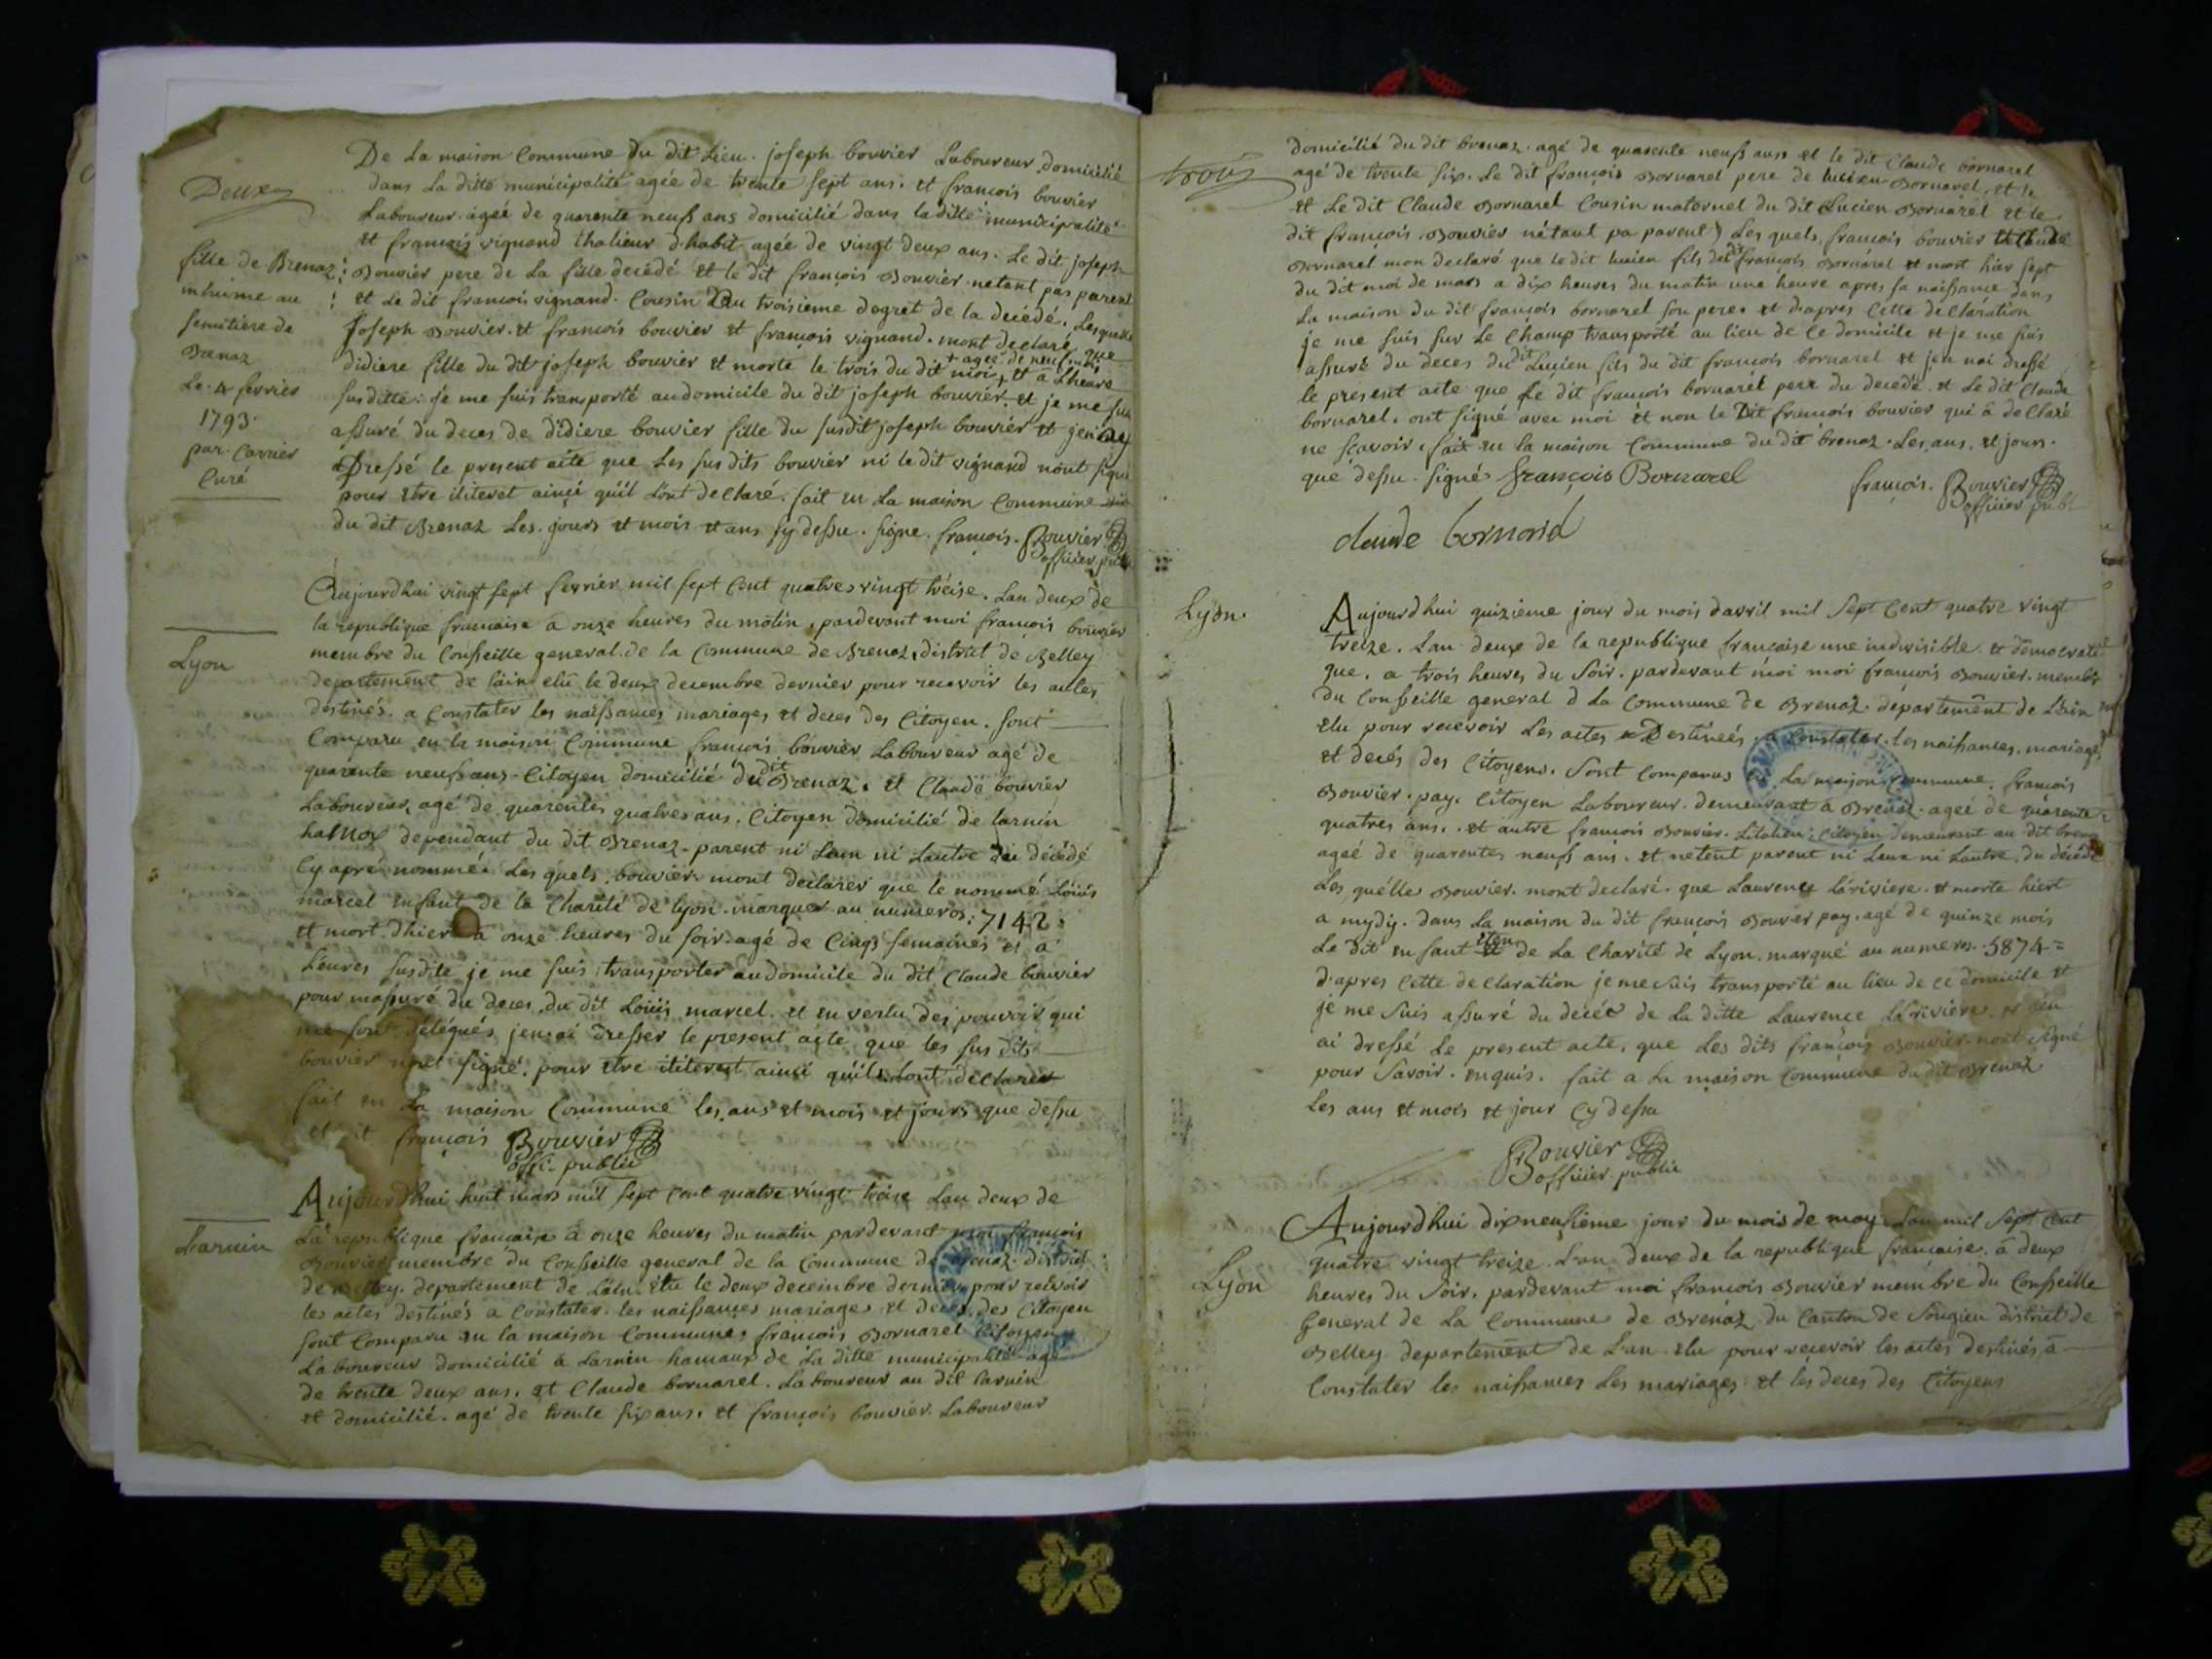 Deux
De La maison Commune du dit Lieu. joseph bouvier Laboureur domicilié
dans La ditte municipalité agée de trente sept ans. et francois bouvier
Laboureur agée de quarente neufs ans domicilié dans la ditte municipalité
et francois vignand thalieur d'habit agée de vingt deux ans. Le dit joseph
Bouvier pere de La fille decédé et le dit françois Bouvier netant pas parent
et Le dit francois vignand. Cousin Dau troisieme degret de la decédé. Lesquelle
Joseph Bouvier. et francois bouvier et françois vignand. mont declaré que
didiere fille du dit joseph bouvier et morte le trois du dit moi + et a Lheure
+ agee de neuf
susditte. je me suis transporté au domicile du dit joseph bouvier. et je me suis
assuré du deces de didiere bouvier fille du susdit joseph bouvier et jen ay
Dressé le present acte que Les sus dits bouvier ni le dit vignand nont signé
pour etre ititeret ainçi quil Lont declaré. fait en La maison Commune
du dit Brenaz Les jours et mois et ans sy dessu. signe. françois. Bouvier
officier publi
fille de Brenaz
inhume au
semitiere de
Brenaz
Le 4 fevrier
1793
par Carrier
Curé
Lyon
Aujourdhui vingt sept fevrier mil sept Cent quatre vingt treise. Lan deux de
la republique francaise a onze heures du matin, pardevant moi francois bouvier
membre du Conseille general de la Commune de Brenaz, district de Belley
departement de lain elu le deux decembre dernier pour recevoir les actes
destinés a Constater les naissances mariages et deces des Citoyen. sont
Comparu en la maison Commune francois bouvier Laboureur agé de
quarente neufs ans Citoyen domicilié du dit Brenaz. et Claude bouvier
Laboureur, agé de quarentes quatres ans. Citoyen domicilié de Larnin
hamox dependant du dit Brenaz parent ni Leun ni Lautre du décédé
Cy apré nommé. Les quels bouvier mont declarer que le nommé Loüis
marcel enfant de la Charité de lyon. marquer au numeros: 7142.
et mort d'hier a onze heures du soir agé de Cinqs semaines et a
Leures susdite je me suis transporter au domicile du dit Claude bouvier
pour massuré du deces du dit Loüis marcel. et en vertu des pouvoir qui
me sont délégués jenai dresser le present acte que les sus dits
bouvier nont signé. pour etre ititerest ainci quils Lont declarer
fait en La maison Commune les ans et mois et jours que dessu
françois Bouvier
offi. public
Larnin
Aujourdhui huit mars mil sept Cent quatre vingt treise Lan deux de
La republique francaise a onze heures du matin pardevant moi francois
Bouvier membre du Conseille general de la Commune de Brenaz. district
de Belley. departement de Lain. Elu le deux decembre dernier pour recevoir
les actes destinés a Constater. les naissances mariages et deces des Citoyen
sont Comparu en la maison Commune. francois Bornarel Citoyen
Laboureur domicilié a Larnin hamaux de la ditte municipalité agé
de trente deux ans. et Claude bornarel. Laboureur au dit larnin
et domicilié. agé de trente six ans. et francois bouvier. Laboureur
trois
domicilié du dit brenaz. agé de quarente neufs ans et le dit Claude bornarel
agé de trente six. Le dit francois Bornarel pere de lucien Bornarel. et le
et Le dit Claude Bornarel Cousin maternel du dit Lucien Bornarel et le
dit françois Bouvier nétant pa parent) Les quels francois bouvier et Claude
Bornarel mon declaré que le dit lucien fils du dit françois Bornarel et mort hier sept
du dit moi de mars a dix heures du matin une heure apres sa naissance dans
La maison du dit françois bornarel son pere. et d'apres Cette declaration
je me suis sur Le Champ transporté au lieu de ce domicile et je me suis
assuré du deces du dit Lucien fils du dit francois bornarel et jen nai dressé
le present acte que le dit francois bornarel pere du decédé et Le dit Claude
bornarel. ont signé avec moi et non le Dit francois bouvier qui a declaré
ne sçavoir. fait en la maison Commune du dit brenaz. Les ans. et jours.
que dessu. signé françois Bornarel
françois. Bouvier
officier publ
claude bornarel
Lyon.
Aujourdhui quizieme jour du mois davril mil Sept Cent quatre vingt
treize. Lan deux de la republique francaise une indivisible et democrati
que. a trois heures du Soir. pardevant moi moi françois Bouvier. membr
du Conseille general d La Commune de Brenaz. departement de Lain
elu pour recevoir Les actes Destineés. a Constater. les naissances. mariages
et decés des Citoyens. Sont Comparus La maison Commune. françois
Bouvier. pay. Citoyen Laboureur. demeurant a Brenaz. ageé de quarente
quatres ans. et autre françois Bouvier. Litalien. Citoyen demeurant au dit brenaz
ageé de quarentes neufs ans. et netent parent ni Leux ni Lautre. du décédé
Les quélle Bouvier. mont declaré. que Laurence Lariviere. et morte hiert
a mydy. dans La maison du dit françois Bouvier pay. agé de quinze mois
Le dit enfant de La Charité de Lyon. marqué au numeros. 5874=
d'apres Cette declaration je me suis transporté au lieu de ce domicile et
je me Suis assuré du decés de La ditte Laurence Lariviere et jen
ai dressé Le present acte, que Les dits françois Bouvier. nont signé
pour Savoir. enquis. fait a La maison Commune du dit Brenaz
Les ans et mois et jour Cy dessu
Bouvier
officier public
Lyon
Aujourdhui dixneufieme jour du mois de may Lan mil Sept Cent
quatre vingt treize. Lan deux de la republique francaise. a deux
heures du Soir. pardevant moi francois Bouvier membre du Conseille
General de La Commune de Brenaz du Canton de Songieu district de
Belley departement de L'an. elu pour recevoir les actes destinés a
Constater les naissances Les mariages et les deces des Citoyens